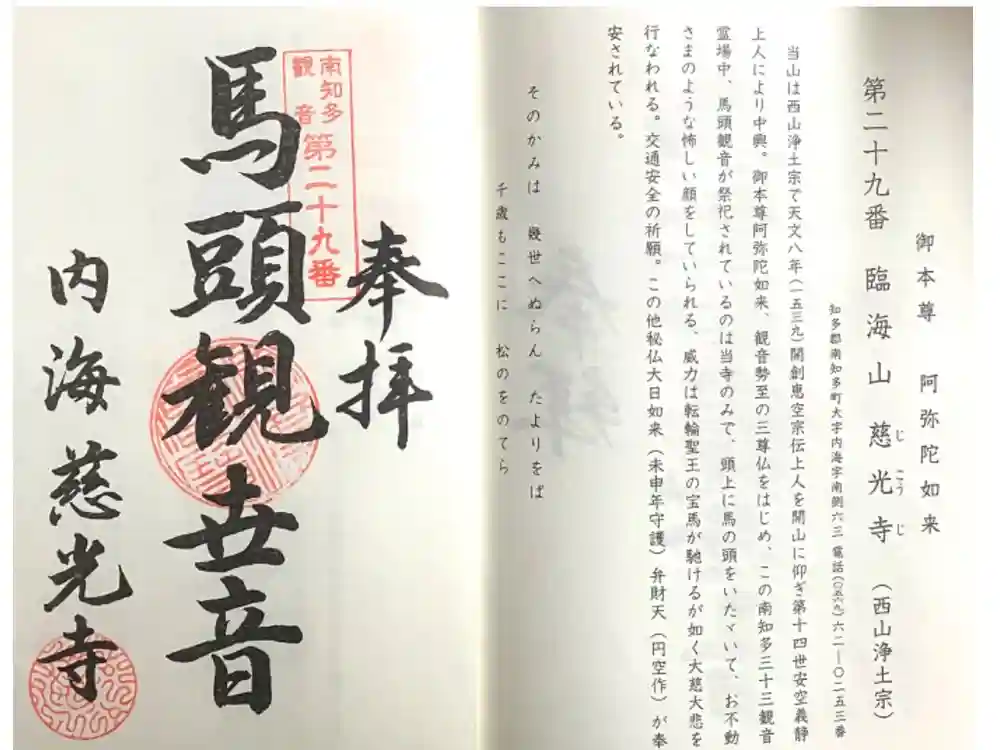 御本尊 阿弥陀如来
第二十九番 臨海山 慈光寺 (西山浄土宗)
じ こう じ
知多郡南知多町大字内海字南側六三 電話(〇五六九)六二―〇二五三番
当山は西山浄土宗で天文八年(一五三九)開創恵空宗伝上人を開山に仰ぎ第十四世安空義静
上人により中興。御本尊阿弥陀如来、観音勢至の三尊仏をはじめ、この南知多三十三観音
霊場中、馬頭観音が祭祀されているのは当寺のみで、頭上に馬の頭をいたゞいて、お不動
さまのような怖しい顔をしていられる、威力は転輪聖王の宝馬が馳けるが如く大慈大悲を
行なわれる。交通安全の祈願。この他秘仏大日如来(未申年守護)弁財天(円空作)が奉
安されている。
そのかみは 幾世へぬらん たよりをば
千歳もここに 松のをのてら
奉拝
南知多
観音
第二十九番
馬頭観世音
内海慈光寺